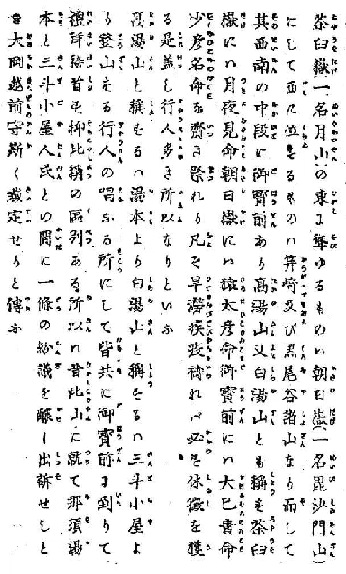 茶臼嶽(一名月山)の東に聳ゆるものハ朝日嶽(一名毘沙門山)
にして西に並ぶものハ及び黒尾谷諸山なり而して
其西南の中段に御寳前あり高湯山又白湯山とも稱を茶臼
嶽にハ月夜見命朝日嶽にハ猿太彦命御寳前にハ大巳貴命
少彦名命を齋き祭れり凡そ旱澇疾疫祷れバ必を休徴を獲
る是蓋し行人多き所以なりといふ
高湯山と稱をるハ湯本より白湯山と稱をるハ三斗小屋よ
り登山をる行人の唱ふる所にして皆共に御寳前に到りて
禮拜を此稱の區別ある所以ハ昔此山に就て那須湯
本と三斗小屋人民との間に一條の紛議を醸し出訴せしと
き大岡越前守斯く裁定せりと傳ふ